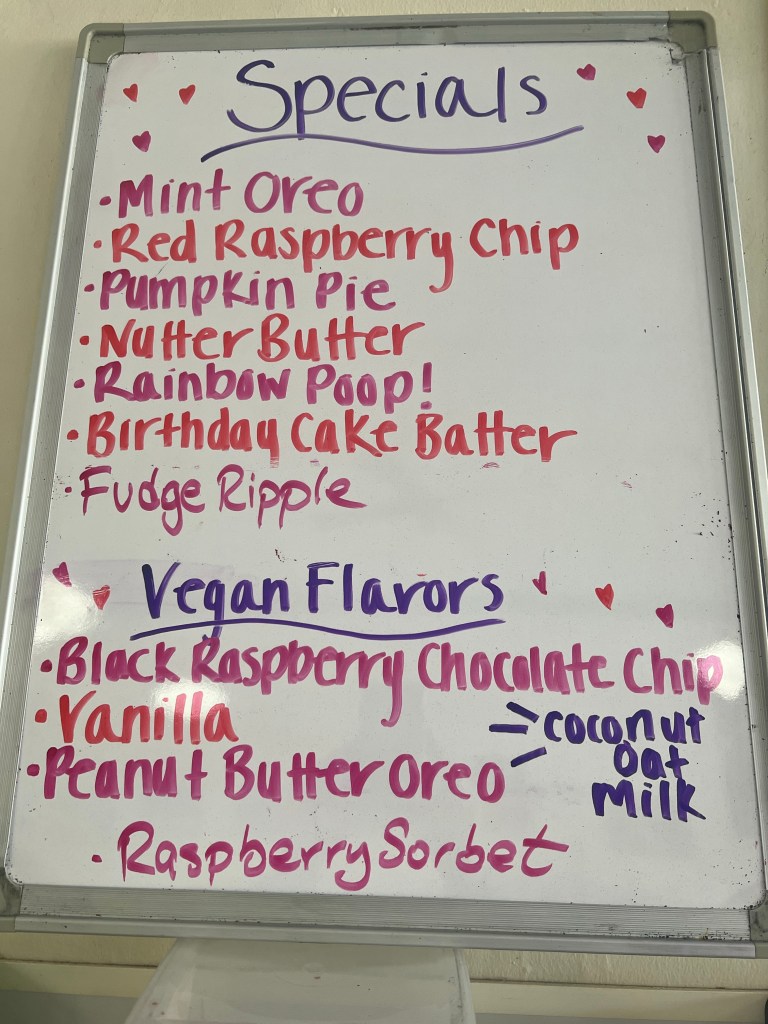 Specials
• Mint Oreo
• Red Raspberry Chip
• Pumpkin Pie
• Nutter Butter
• Rainbow Poop!
• Birthday Cake Batter
• Fudge Ripple
Vegan Flavors
• Black Raspberry Chocolate Chip
• Vanilla
• Peanut Butter Oreo
coconut
oat
milk
• Raspberry Sorbet